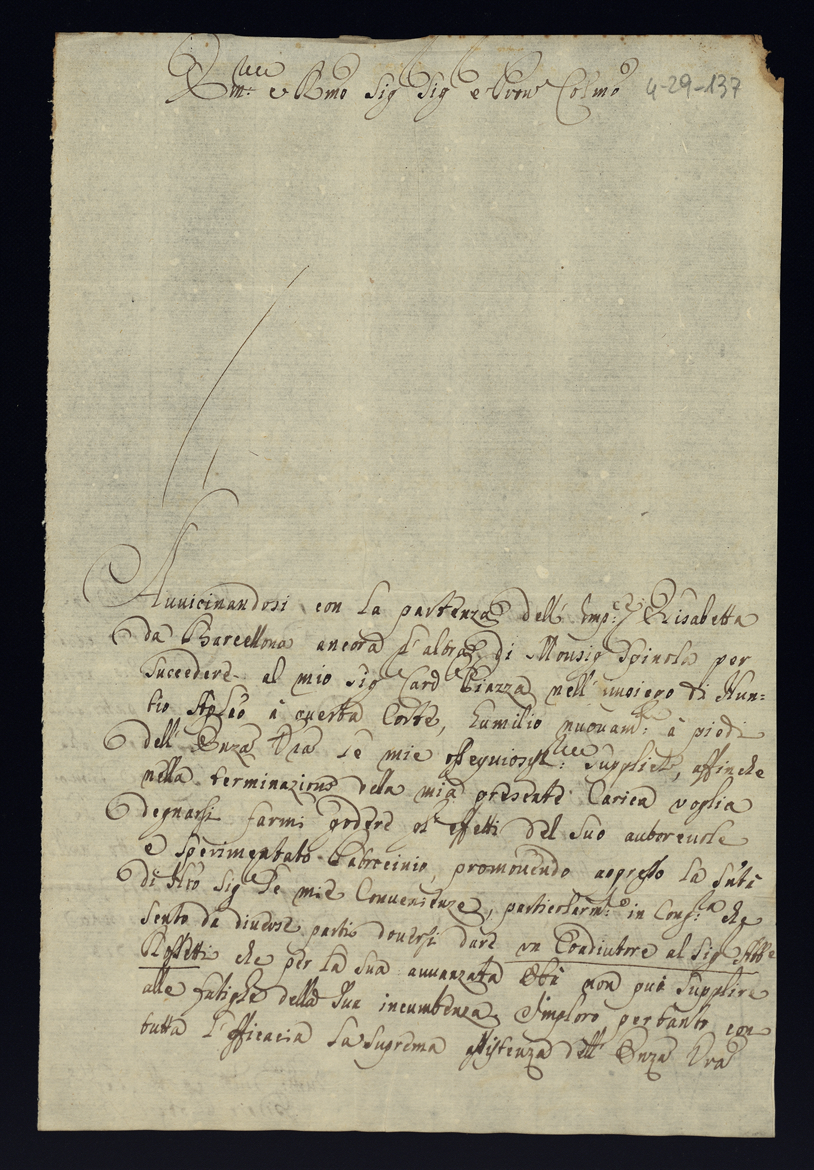 Em:mo e Rmo Sig Sig e Pron Colmo 4-29-137
Auuicinandosi, con la partenza dell' Imp:ce Elisabetta
da Barcellona ancora l'altra di Monsig Spinola per
succedere al mio Sig Card Piazza nell' impiego di Nun=
tio Aplco à questa Corte, humilio nuouam:te à piedi
dell' Emza Vra le mie ossequiosis:me suppliche, affinche
nella terminazione della mia presente Carica voglia
degnarsi farmi godere gl' effetti del suo autoreuole
e sperimentato Patrocinio, promouendo appresso la Sntà
di Nro Sig le mie Conuenienze, particolarm:te in Cong:a che
sento da diuerse parti douersi dare un Coadiutore al Sig Abbe
Rossetti che per la sua auuanzata età non può supplire
alle fatighe della sua incumbenza, Imploro pertanto con
tutta l'efficacia la suprema assistenza dell' Emza Vra